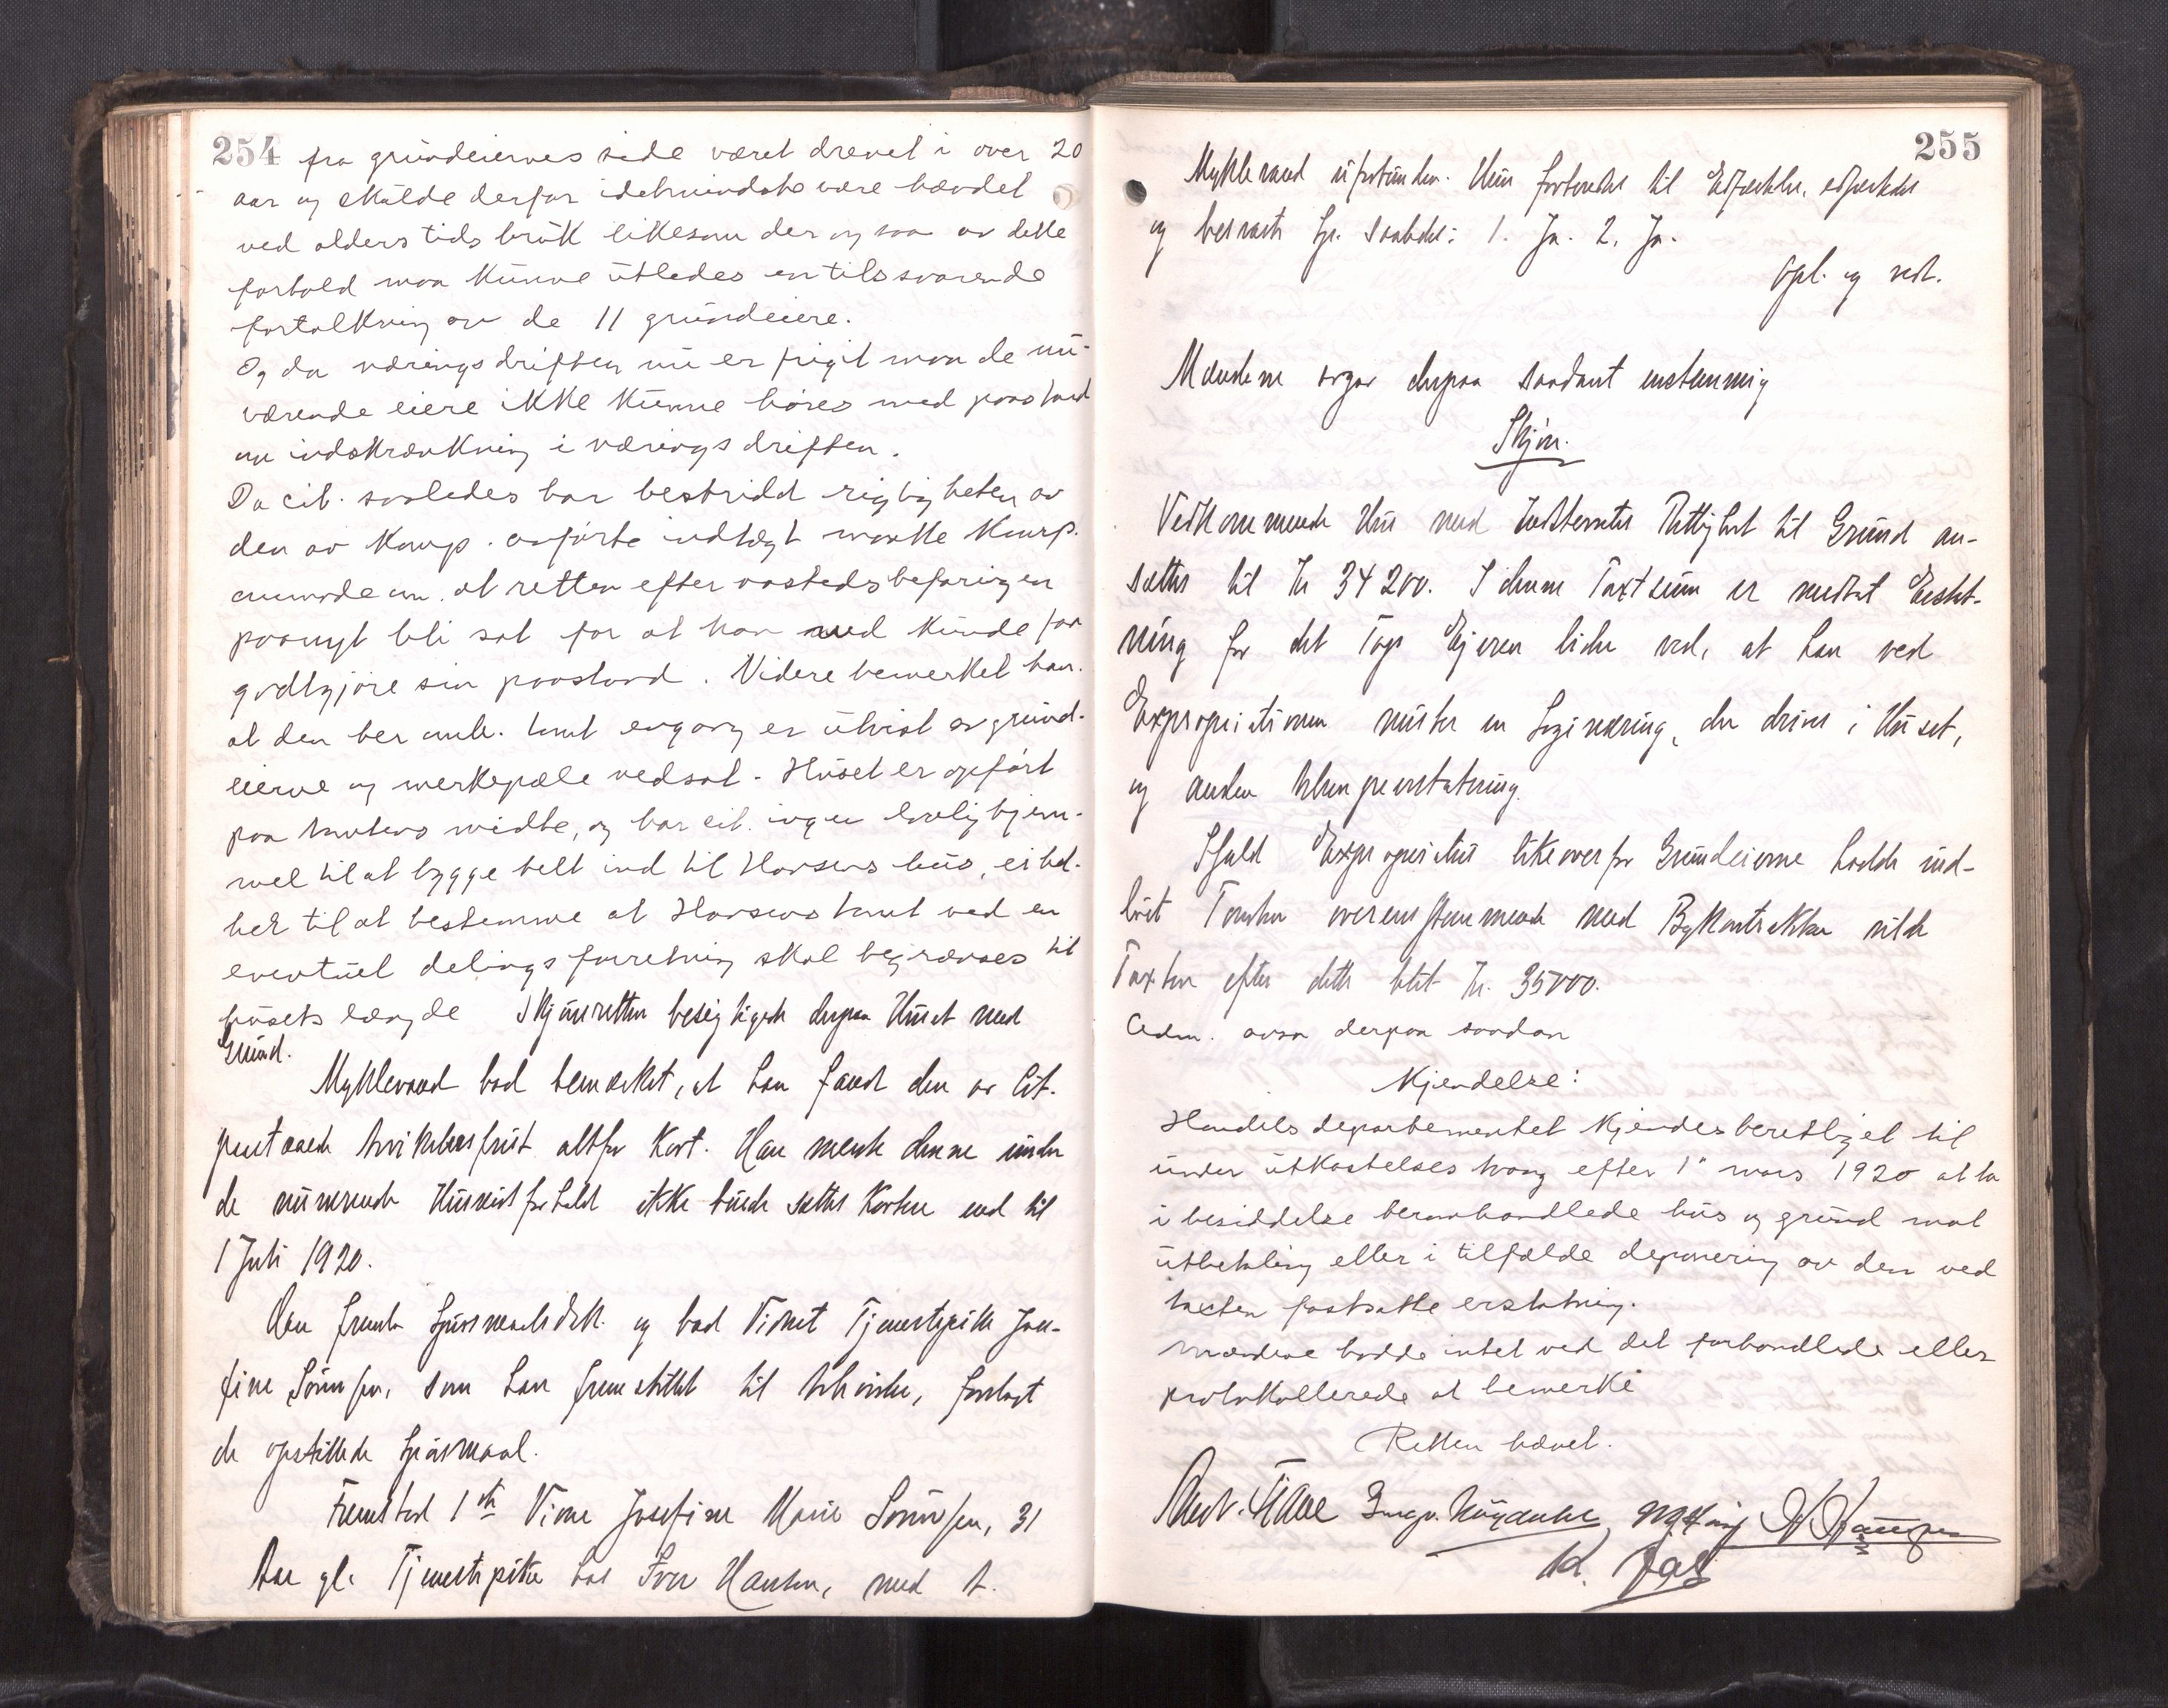 254
fra grundeiernes side været drevet i over 20
aar og skulde derfor idetmindste være hævdet
ved alders tids bruk likesom der ogsaa av dette
forhold maa kunne utledes en tilssvarende
fortolkning av de 11 grundeiere.
Og da næringsdriften nu er frigit maa de nu-
værende eiere ikke kunne høres med paastand
om indskrænkning i næringsdriften.
Da cit. saaledes har bestridd rigtigheten av
den av Komp. anførte indtægt maatte Komp.
anmode om at retten efter aastedsbefaringen
paanyt bli sat for at han med kunde faa
godtgjøre sin paastand. Videre bemerket han
at den ber omh. tomt engang er utvist av grund-
eierne og merkepæle nedsat. Huset er opført
paa tomtens midte, og har cit. ingen lovlig hjem-
mel til at bygge helt ind til Hansens hus, ei hel-
ler til at bestemme at Hansens tomt ved en
eventuel delingsforretning skal begrænses til
husets længde Skjønsretten besigtigede derpaa Huset med
Grund.
Myklevand bad bemærket, at han fandt den av Cit.
paastaaede fravikelsesfrist altfor kort. Han mente denne under
de nuværende Husnødforhold ikke burde sættes kortere end til
1 Juli 1920.
Han fremla Spørsmaalsdok. og bad Vidnet Tjenestepike Jose-
fine Sørensen, som han fremstillet til , forelagt
de opstillede Spørsmaal.
Fremstod 1ste Vidne Josefine Marie Sørensen, 31
Aar gl. Tjenestepike hos Iver Hansen, med t.
255
Myklevand ubeslægtet. Hun formanedes til Edfæstelse, edfæstedes
og besvarte Sp. saaledes: 1. Ja. 2. Ja.
Opl. og vedt.
Mændene avgav derpaa saadant enstemmig
Skjøn.
Vedkommende Hus med Rettighet til Grund an-
sættes til Kr 34200. I denne Taxtsum er medtat Erstat-
ning for det Tap Ejeren lider ved, at han ved
Expropriationen mister en Loginæring, der drives i Huset,
og anden Ulempeerstatning.
Ifald Expropriatus likeoverfor Grundeierne hadde ind-
løst Tomten overensstemmende med Bygkontrakten vilde
Taxten efter dette blit Kr. 35000.
Adm. avsa derpaa saadan
Kjendelse:
Handelsdepartementet kjendes berettiget til
under utkastelses tvang efter 1ste mars 1920 at ta
i besiddelse beromhandlede hus og grund mot
utbetaling eller i tilfælde deponering av den ved
taxten fastsatte erstatning.
Mændene hadde intet ved det forhandlede eller
protokollerede at bemerke
Retten hævet.